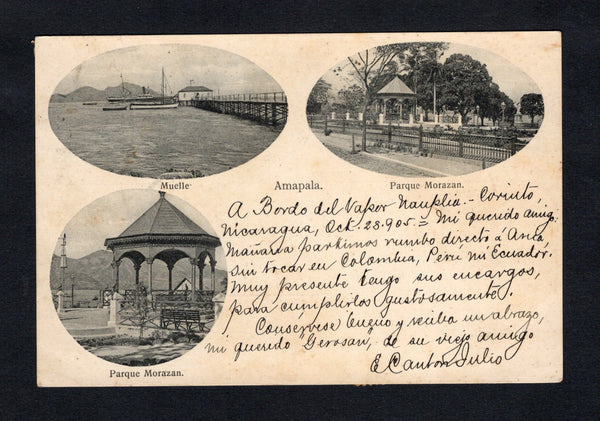 Muelle.
Amapala.
Parque Morazan.
A Bordo del Vapor Nauplia.- Corinto,
Nicaragua, Oct. 28.905.= Mi querido amigo.
Mañana partimos rumbo directo á Arica
sin tocar en Colombia, Perú ni Ecuador.
Muy presente tengo sus encargos,
para cumplirlos gustosamente.
Consérvese bueno y reciba un abrazo,
mi querido "Gerosan", de su viejo amigo
E. Canton Julio
Parque Morazan.